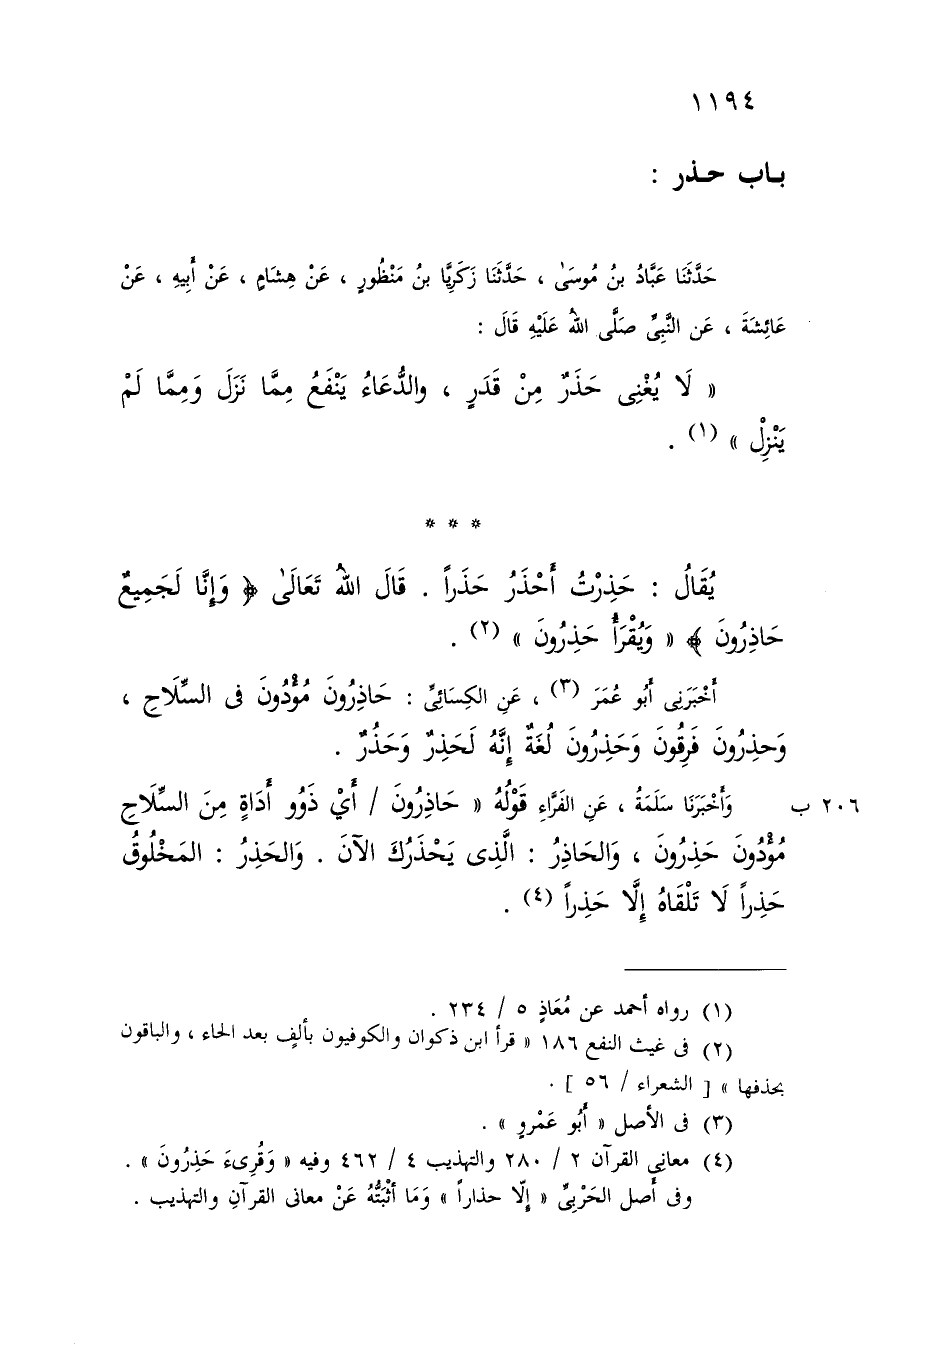 ١١٩٤
بـاب حـذر :
حَدَّثَنَا عَبَّادُ بنُ مُوسَىٰ ، حَدَّثَنَا زَكَرِيَّا بنُ مَنْظُورٍ ، عَنْ هِشَامٍ ، عَنْ أَبِيهِ ، عَنْ
عَائِشَةَ ، عَن النَّبِيِّ صَلَّى اللهُ عَلَيْهِ قَالَ :
« لَا يُغْنِى حَذَرٌ مِنْ قَدَرٍ ، والدُّعَاءُ يَنْفَعُ مِمَّا نَزَلَ وَمِمَّا لَمْ
يَنْزِلْ » (١) .
* * *
يُقَالُ : حَذِرْتُ أَحْذَرُ حَذَراً . قَالَ اللهُ تَعَالَىٰ ﴿ وَإِنَّا لَجَمِيعٌ
حَاذِرُونَ ﴾ « وَيُقْرَأُ حَذِرُونَ » (٢) .
أَخْبَرَنِى أَبُو عُمَرَ (٣) ، عَنِ الكِسَائِىِّ : حَاذِرُونَ مُؤْدُونَ فى السِّلَاحِ ،
وَحذِرُونَ فَرِقُونَ وَحَذِرُونَ لُغَةٌ إِنَّهُ لَحَذِرٌ وَحَذُرٌ .
وَأَخْبَرَنَا سَلَمَةُ ، عَنِ الفَرَّاءِ قَوْلُهُ « حَاذِرُونَ / أَيْ ذَوُو أَدَاةٍ مِنَ السِّلَاحِ ٢٠٦ ب
مُؤْدُونَ حَذِرُونَ ، وَالحَاذِرُ : الَّذِى يَحْذَرُكَ الآنَ . وَالحَذِرُ : المَخْلُوقُ
حَذِراً لَا تَلْقَاهُ إِلَّا حَذِراً (٤) .
(١) رواه أحمد عن مُعَاذٍ ٥ / ٢٣٤ .
(٢) فى غيث النفع ١٨٦ « قرأ ابن ذكوان والكوفيون بألفٍ بعد الحاء ، والباقون
بحذفها » [ الشعراء / ٥٦ ] .
(٣) فى الأصل « أَبُو عَمْروٍ » .
(٤) معانى القرآن ٢ / ٢٨٠ والتهذيب ٤ / ٤٦٢ وفيه « وَقُرِىءَ حَذِرُونَ » .
وفى أصل الحَرْبِىِّ « إِلّا حذاراً » وَمَا أثْبَتُّهُ عَنْ معانى القرآنِ والتهذيب .